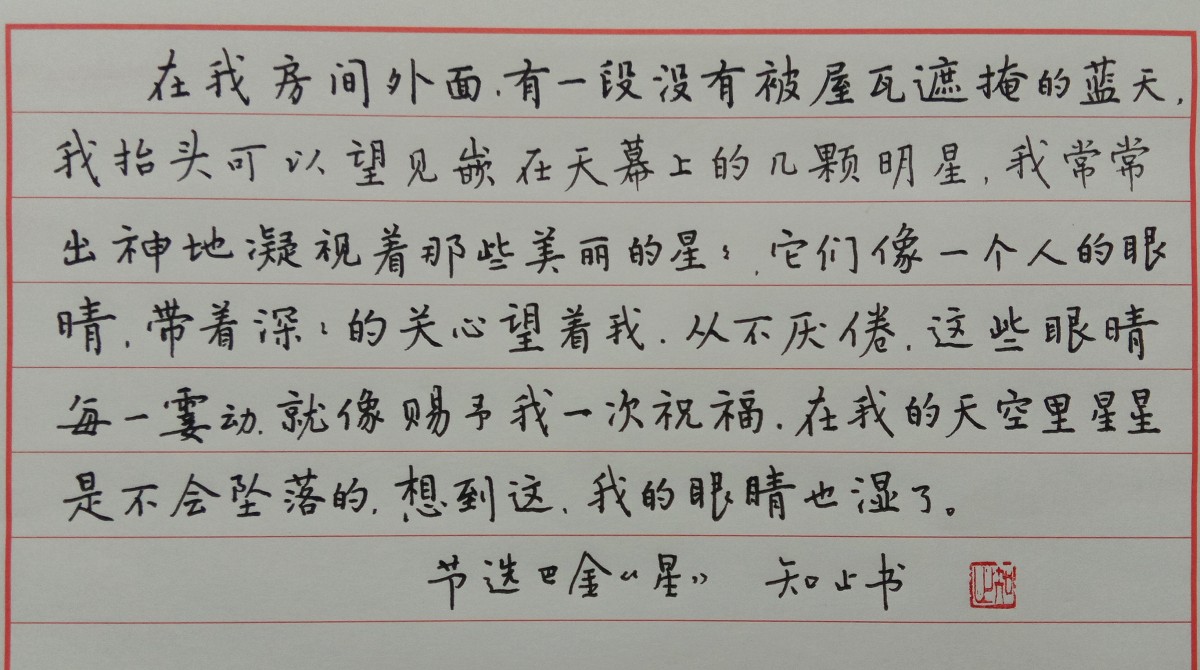 在我房间外面,有一段没有被屋瓦遮掩的蓝天,
我抬头可以望见嵌在天幕上的几颗明星,我常常
出神地凝视着那些美丽的星〻,它们像一个人的眼
睛,带着深〻的关心望着我.从不厌倦,这些眼睛
每一霎动.就像赐予我一次祝福.在我的天空里星星
是不会坠落的,想到这,我的眼睛也湿了。
节选巴金“星” 知止书
知止